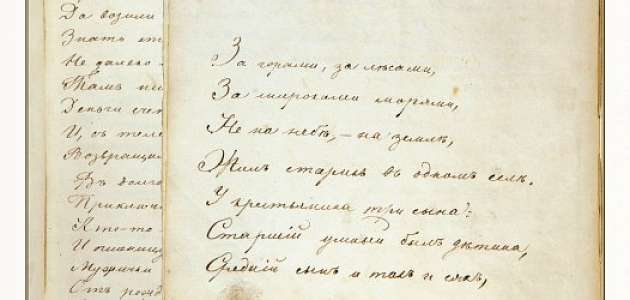 Да возили
Знать ст
Не далеко
Тамъ
Деньги счет
И, съ
Возвращал
Въ долго
Приключи
Кто-то
И
Мужички
Стъ
За горами, за лѣсами,
За широкими морями,
Не на небѣ, – на землѣ,
Жилъ старикъ въ одномъ селѣ.
У крестьянина три сына:
Старшій умный былъ дѣтина,
Средній сынъ и такъ и сякъ,